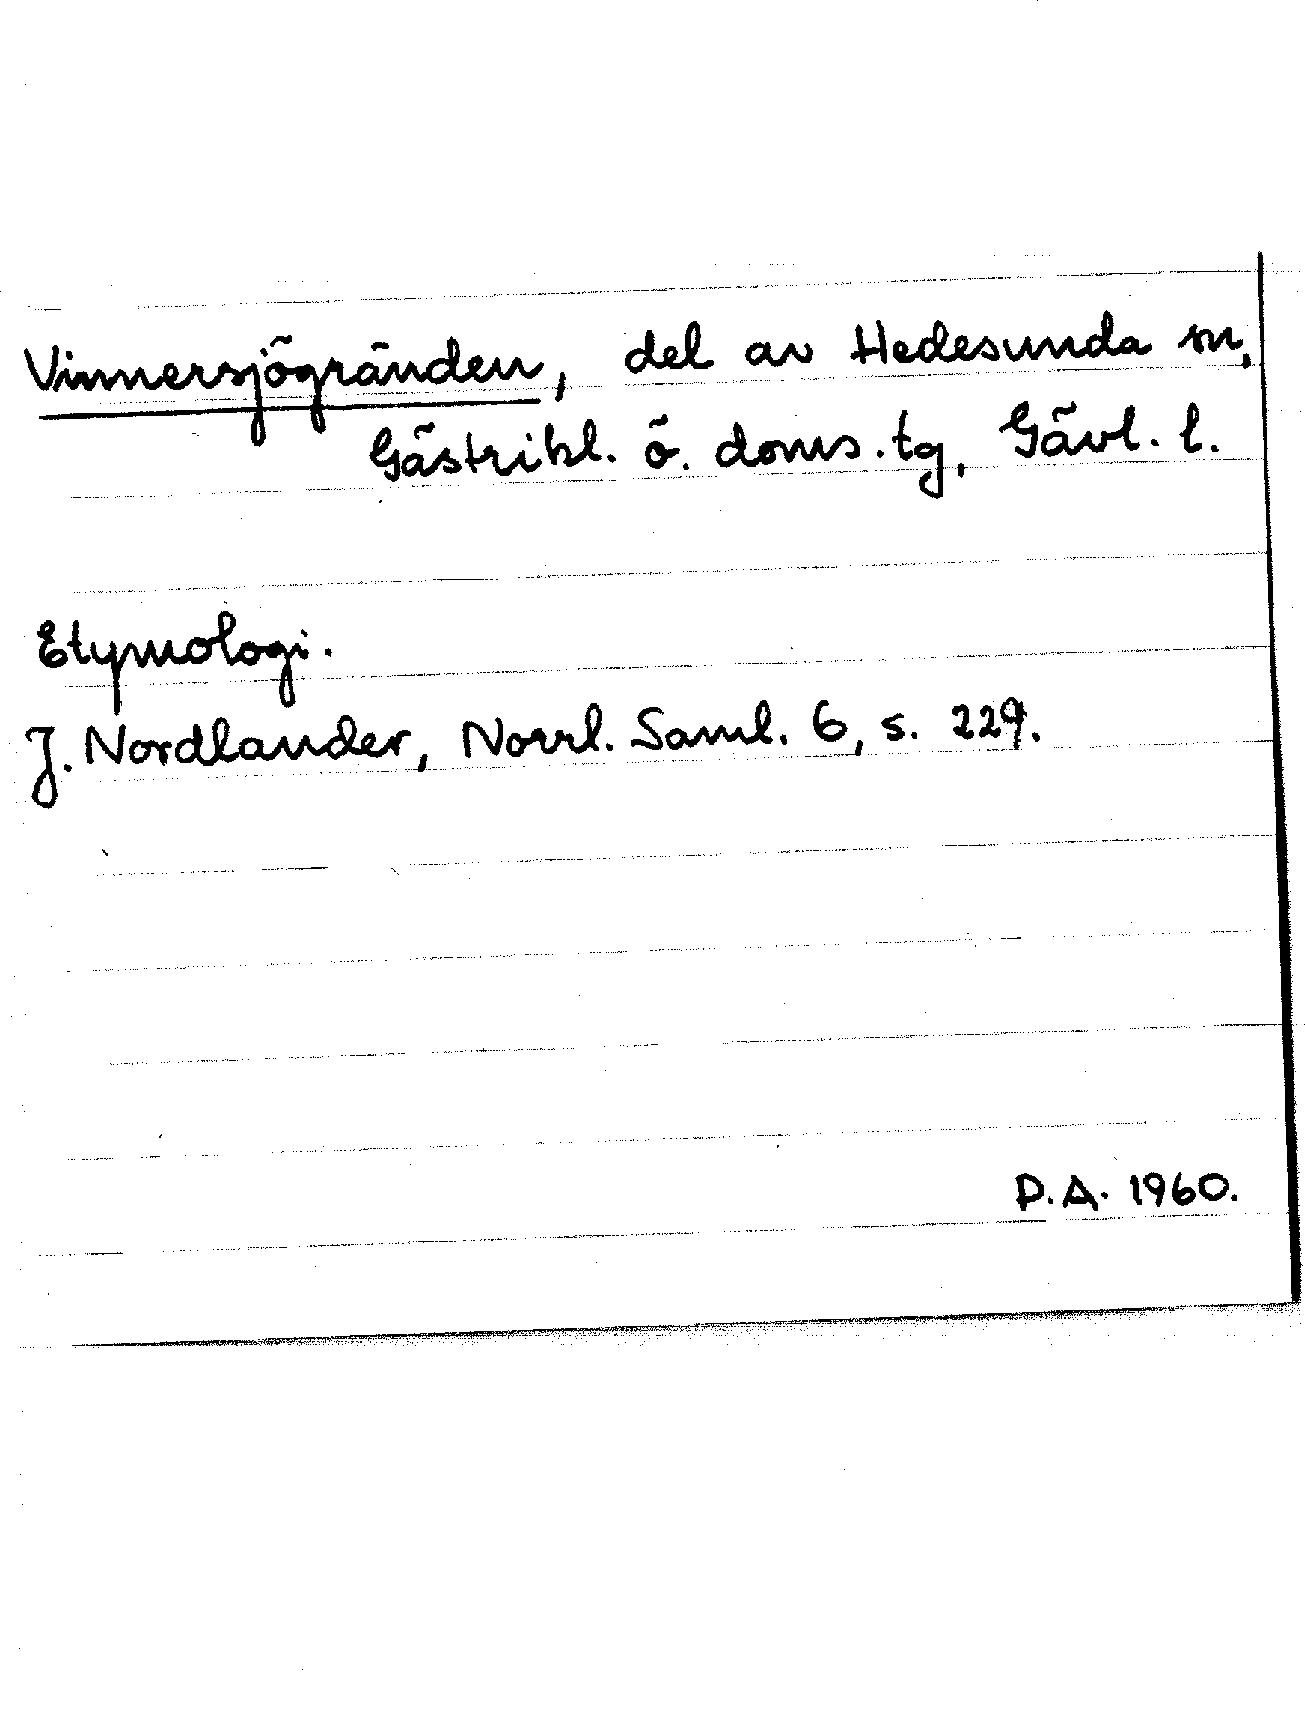 Vinnersjögränden, del av Hedesunda sn,
Gästrikl. ö. doms. tg, Gävl. l.
Etymologi.
J. Nordlander, Norrl. Saml. 6, s. 229.
P.A. 1960.